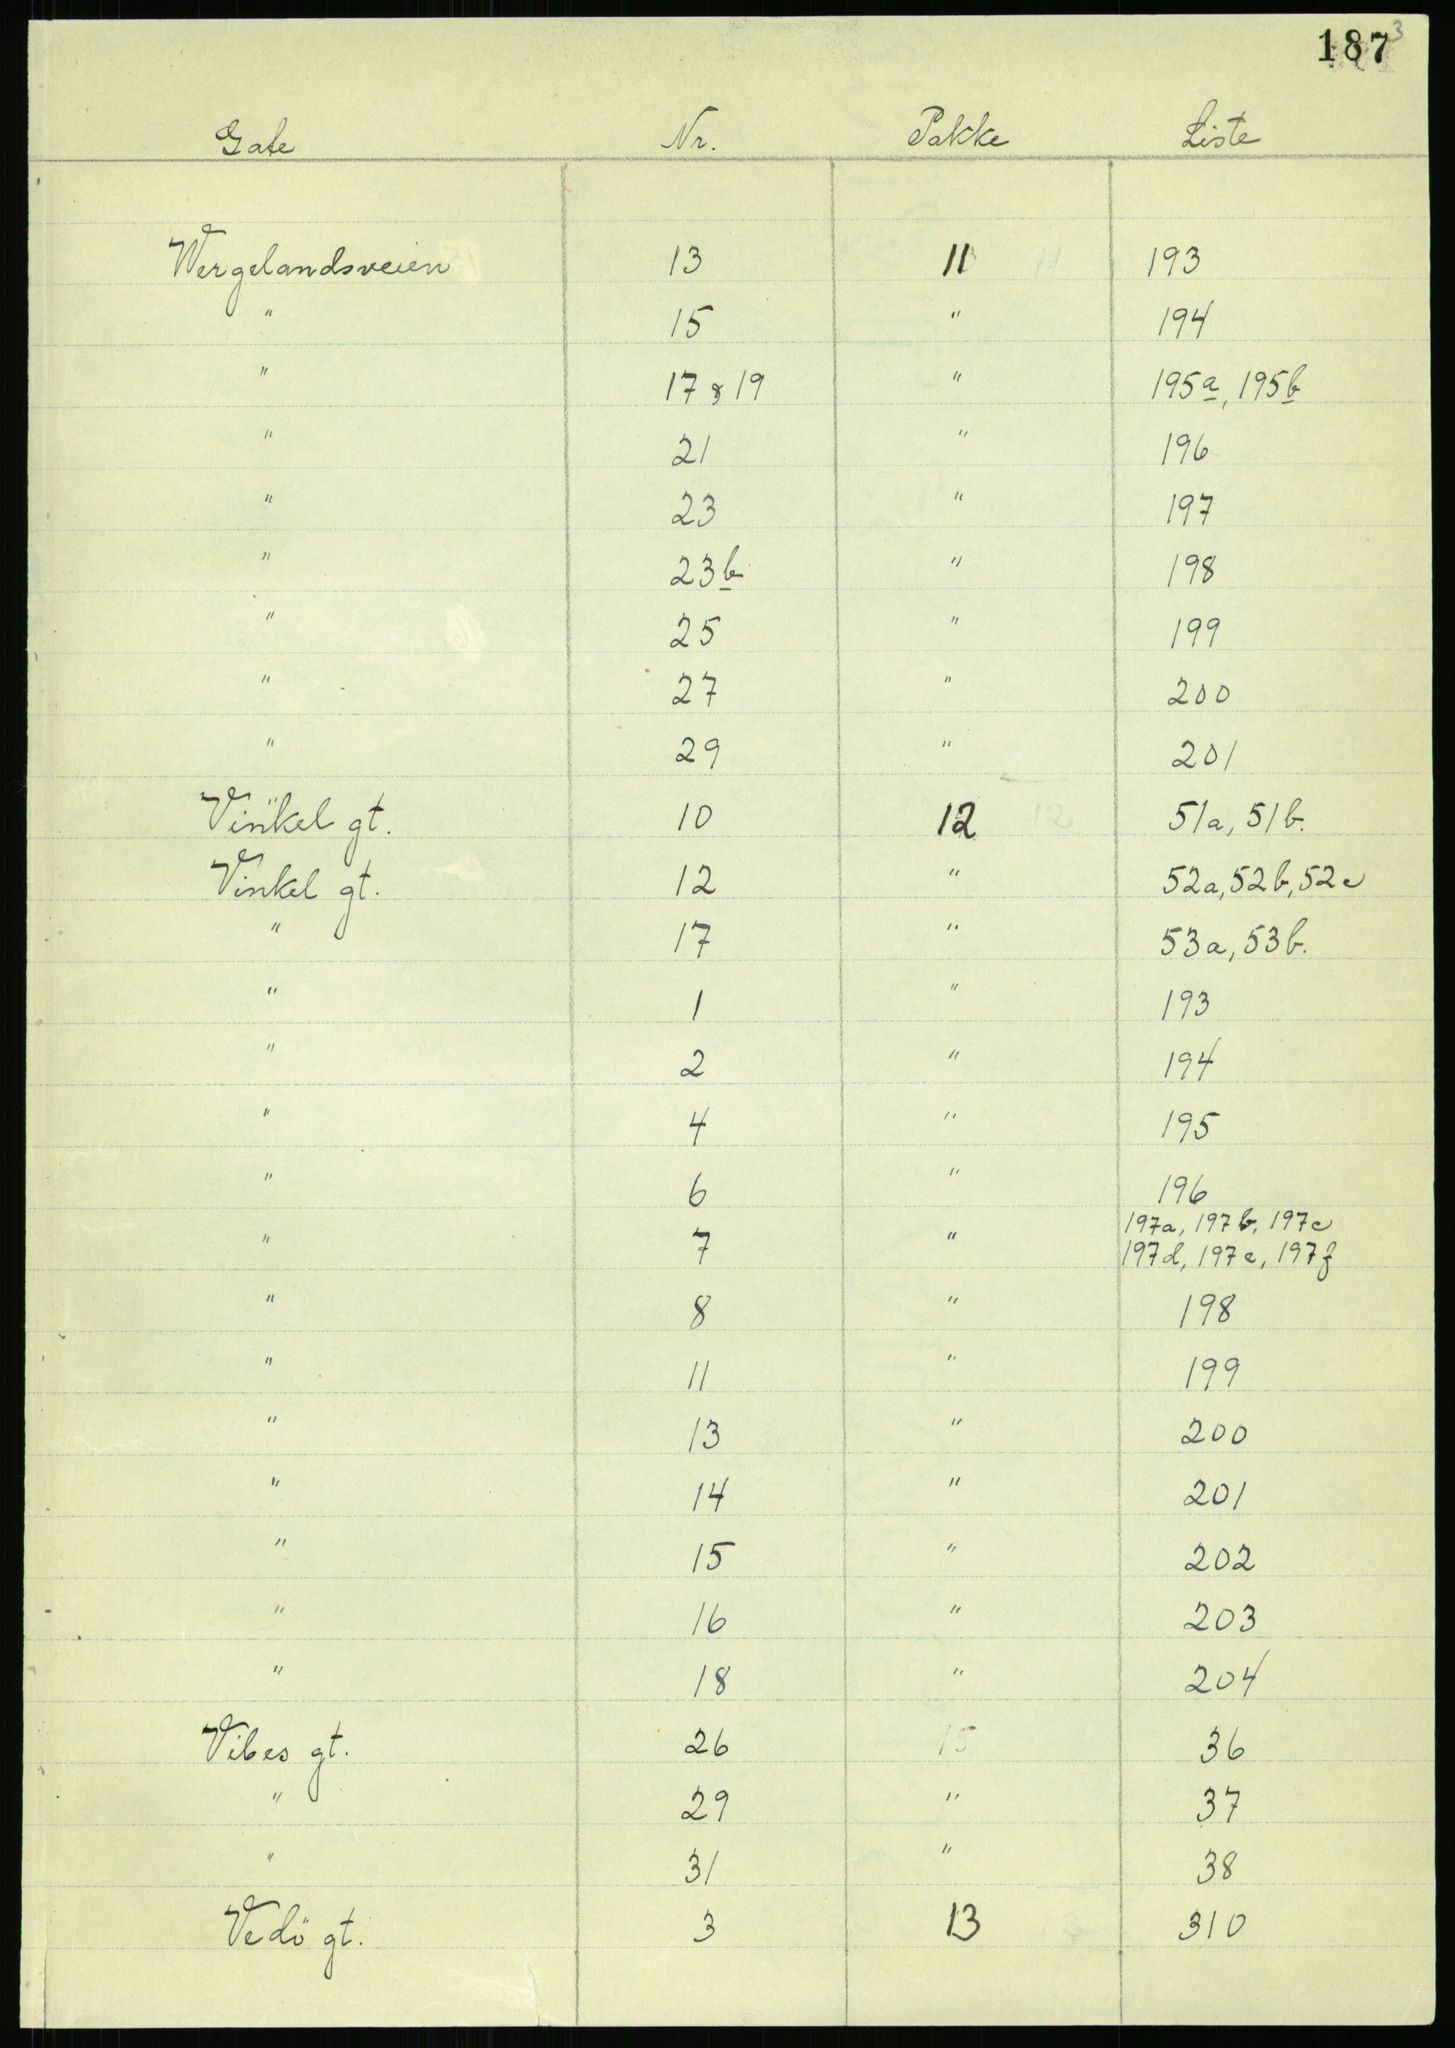 187 3
Gate Nr. Pakke Liste
Wergelandsveien 13 11 193
" 15 " 194
" 17 & 19 " 195a, 195b
" 21 " 196
" 23 " 197
" 23b " 198
" 25 " 199
" 27 " 200
" 29 " 201
Vinkel gt. 10 12 51a, 51b.
Vinkel gt. 12 " 52a, 52b, 52c
" 17 " 53a, 53b.
" 1 " 193
" 2 " 194
" 4 " 195
" 6 " 196
" 7 " 197a, 197b, 197c
197d, 197e, 197f
" 8 " 198
" 11 " 199
" 13 " 200
" 14 " 201
" 15 " 202
" 16 " 203
" 18 " 204
Vibes gt. 26 15 36
" 29 " 37
" 31 " 38
Vedö gt. 3 13 310